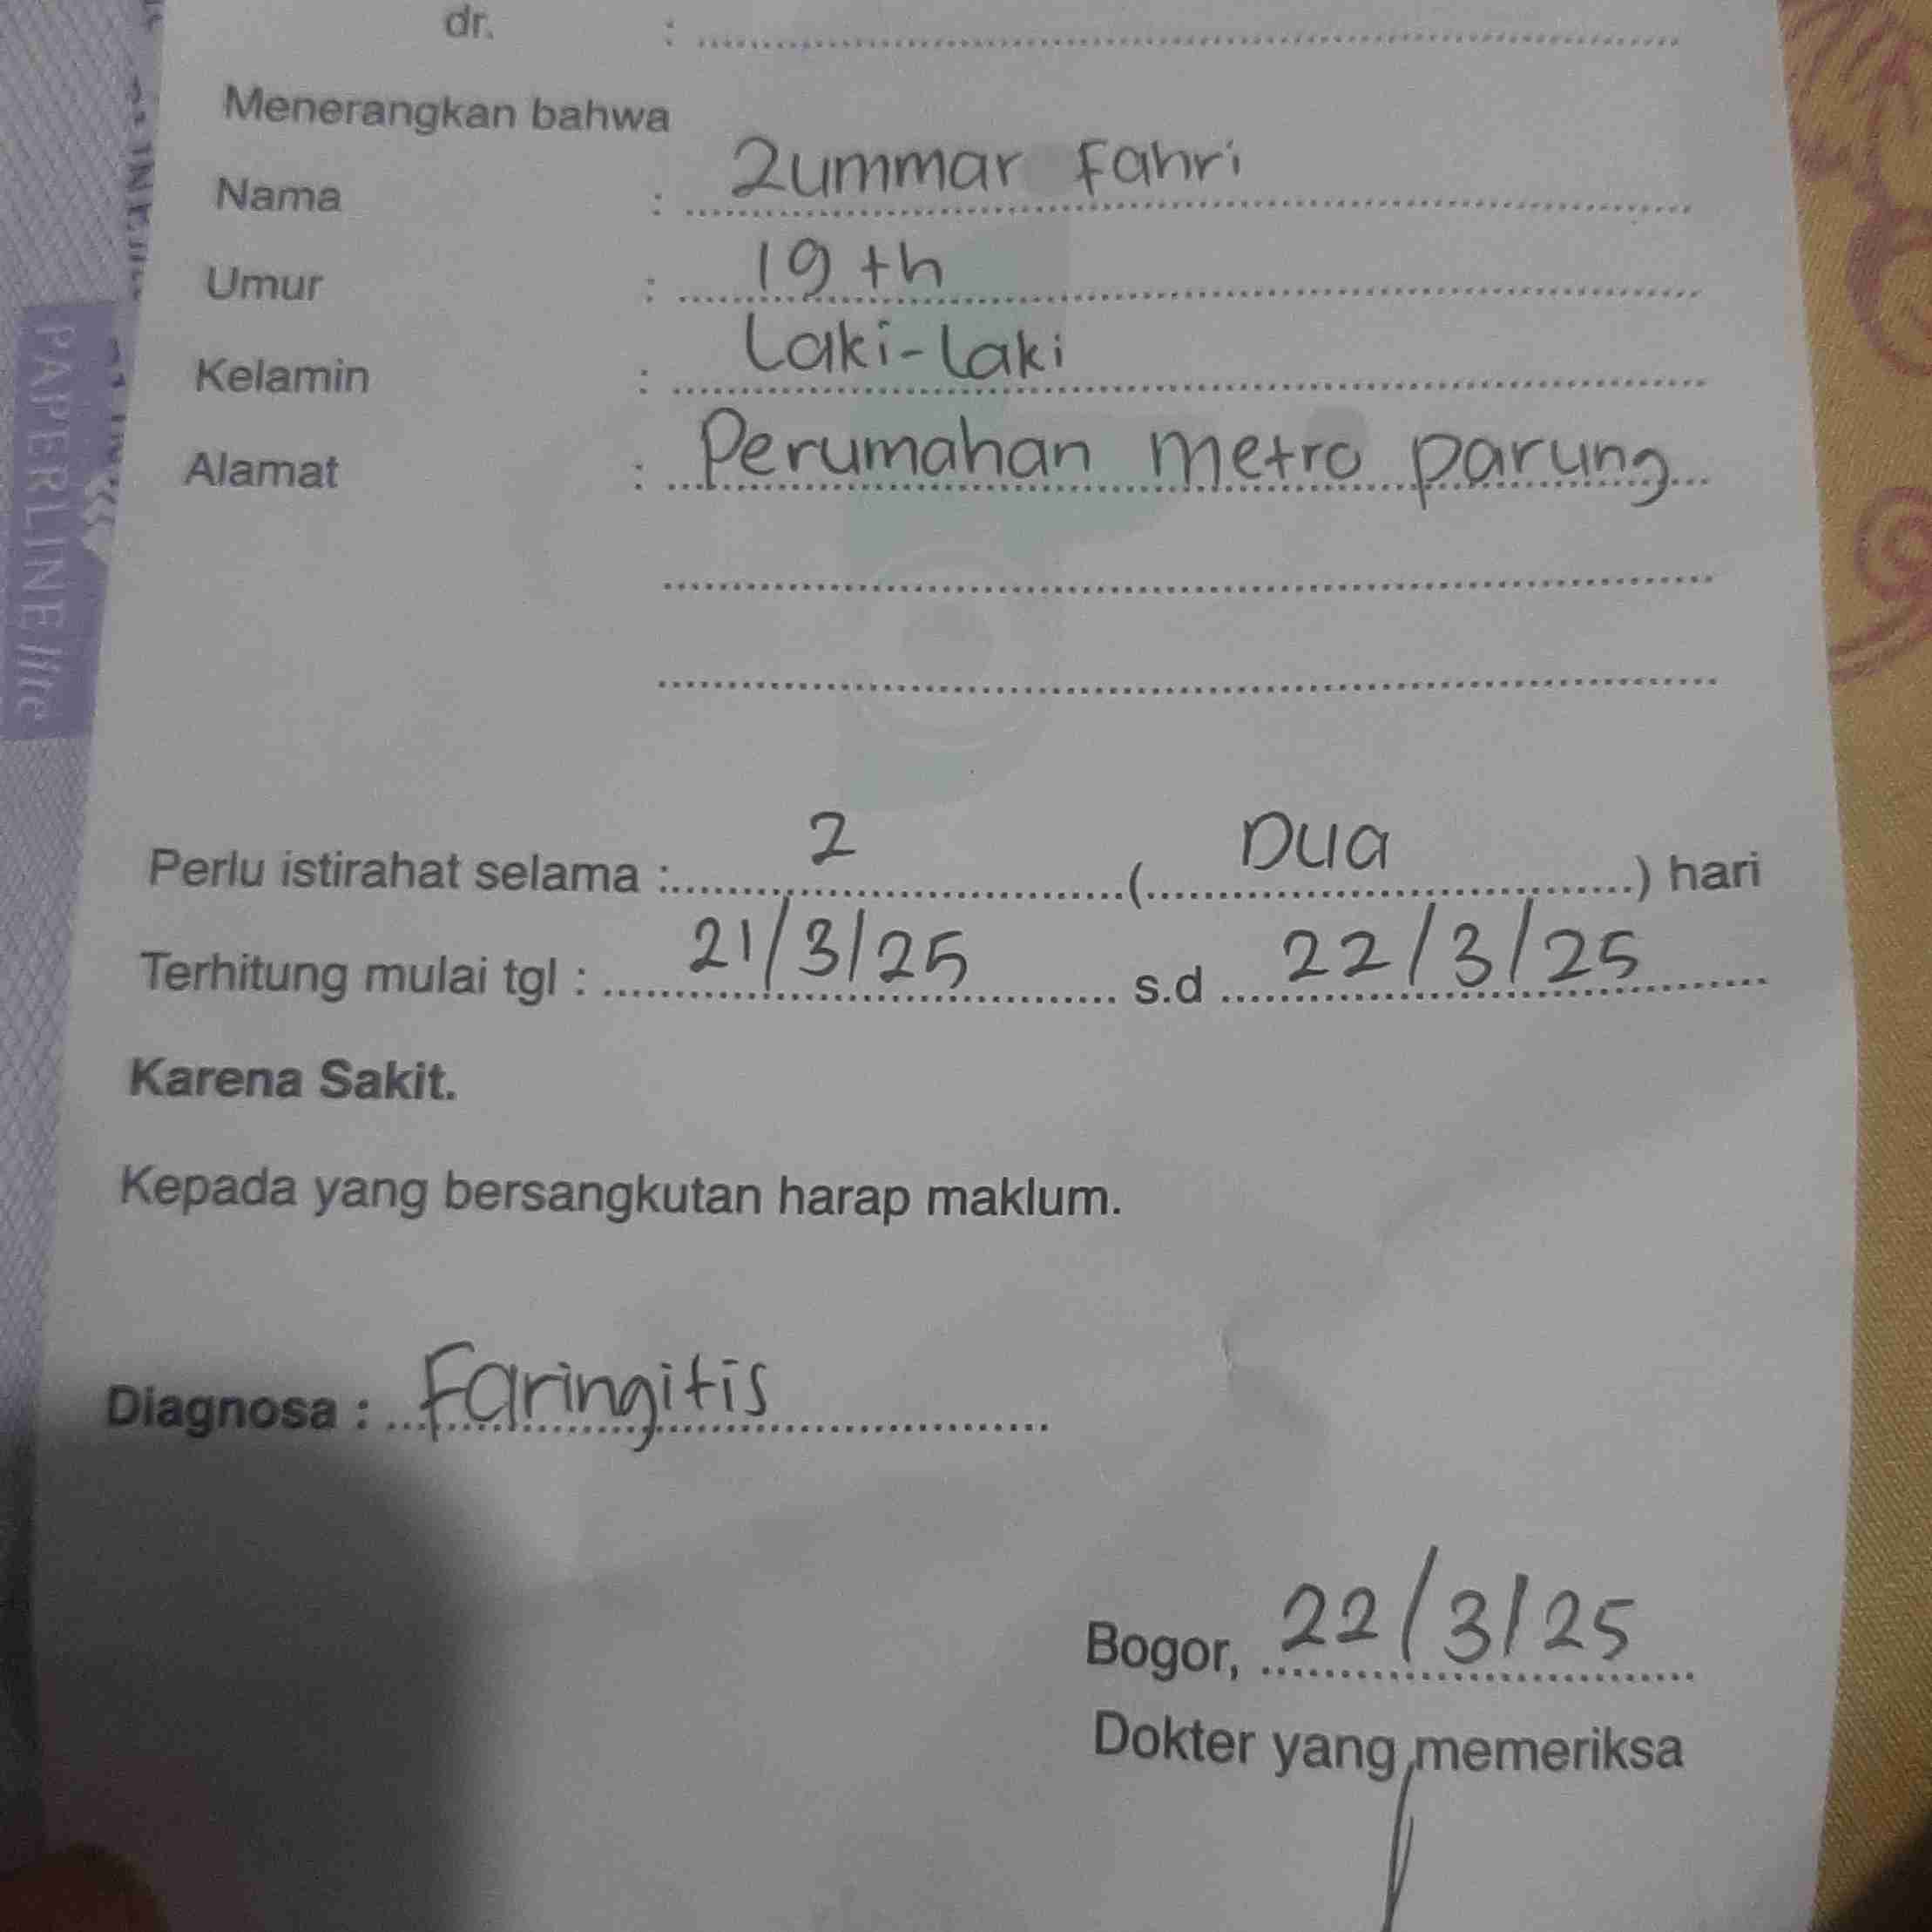 dr. :
Menerangkan bahwa
Nama : Zummar Fahri
Umur : 19 th
Kelamin : Laki-laki
Alamat : Perumahan Metro parung
Perlu istirahat selama : 2 ( Dua ) hari
Terhitung mulai tgl : 21/3/25 s.d 22/3/25
Karena Sakit.
Kepada yang bersangkutan harap maklum.
Diagnosa : Faringitis
Bogor, 22/3/25
Dokter yang memeriksa
PAPERLINE lite